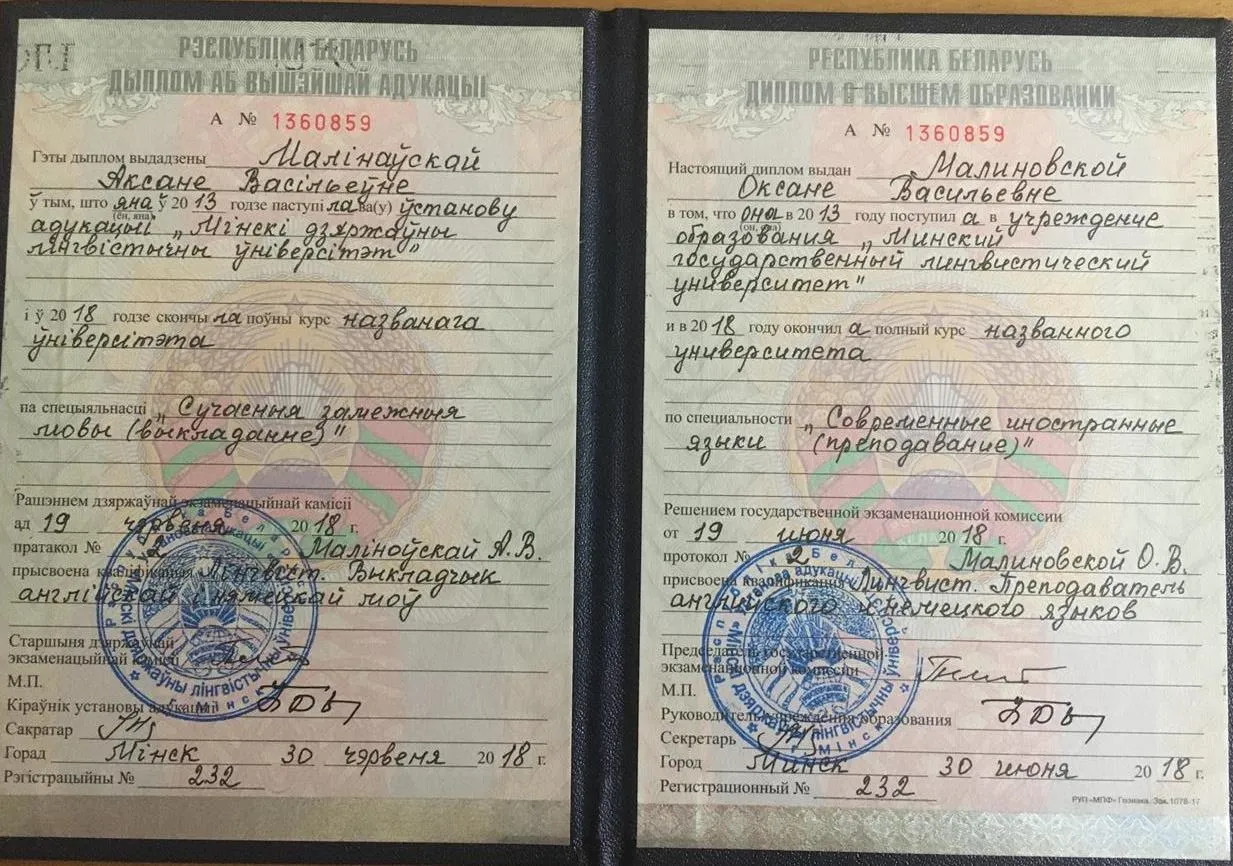 РЭСПУБЛІКА БЕЛАРУСЬ
ДЫПЛОМ АБ ВЫШЭЙШАЙ АДУКАЦЫІ
А № 1360859
Гэты дыплом выдадзены Малінаўскай
Аксане Васільеўне
ў тым, што яна ў 2013 годзе паступіла ва(у) ўстанову
(ён, яна)
адукацыі „Мінскі дзяржаўны
лінгвістычны ўніверсітэт"
і ў 2018 годзе скончыла поўны курс названага
ўніверсітэта
па спецыяльнасці „Сучасныя замежныя
мовы (выкладанне)"
Рашэннем дзяржаўнай экзаменацыйнай камісіі
ад 19 чэрвеня 2018 г.
пратакол № 2 Маліноўскай А.В.
прысвоена кваліфікацыя Лінгвіст. Выкладчык
англійскай і нямецкай моў
Старшыня дзяржаўнай
экзаменацыйнай камісіі
М.П.
Кіраўнік установы адукацыі
Сакратар
Горад Мінск 30 чэрвеня 2018 г.
Рэгістрацыйны № 232
РЕСПУБЛИКА БЕЛАРУСЬ
ДИПЛОМ О ВЫСШЕМ ОБРАЗОВАНИИ
А № 1360859
Настоящий диплом выдан Малиновской
Оксане Васильевне
в том, что она в 2013 году поступила в учреждение
(он, она)
образования „Минский
государственный лингвистический
университет"
и в 2018 году окончила полный курс названного
университета
по специальности „Современные иностранные
языки (преподавание)"
Решением государственной экзаменационной комиссии
от 19 июня 2018 г.
протокол № 2 Малиновской О.В.
присвоена квалификация Лингвист. Преподаватель
английского и немецкого языков
Председатель государственной
экзаменационной комиссии
М.П.
Руководитель учреждения образования
Секретарь
Город Минск 30 июня 2018 г.
Регистрационный № 232
РУП «МПФ» Гознака. Зак. 1078-17